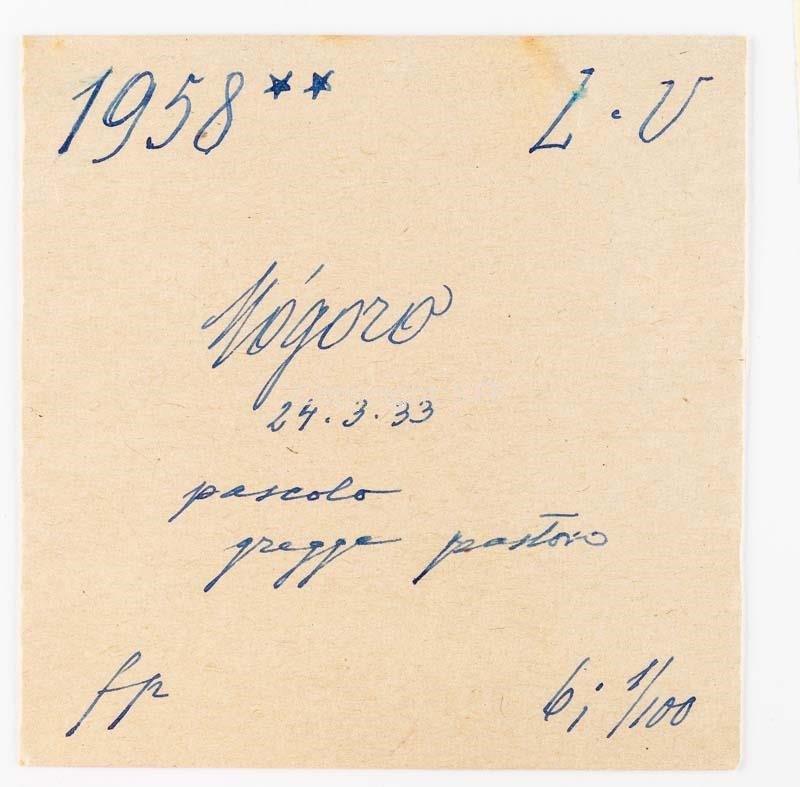 1958** L. V
Mógoro
24.3.33
pascolo
gregge pastoro
fp 6; 1/100